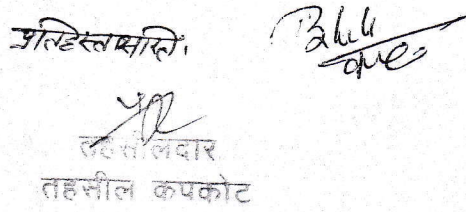 प्रतिहस्ताक्षरित.
तहसीलदार
तहसील कपकोट